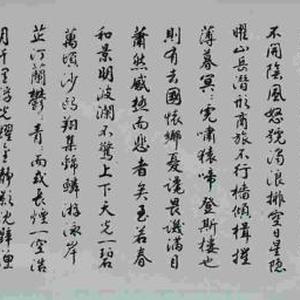 不開陰風怒號濁浪排空日星隱
曜山岳潛形商旅不行檣傾楫摧
薄暮冥〻虎嘯猿啼登斯樓也
則有去國懷鄉憂讒畏譏滿目
蕭然感極而悲者矣至若春
和景明波瀾不驚上下天光一碧
萬頃沙鷗翔集錦鱗游泳岸
芷汀蘭鬱〻青〻而或長煙一空浩
月千里浮光耀金靜影沈璧